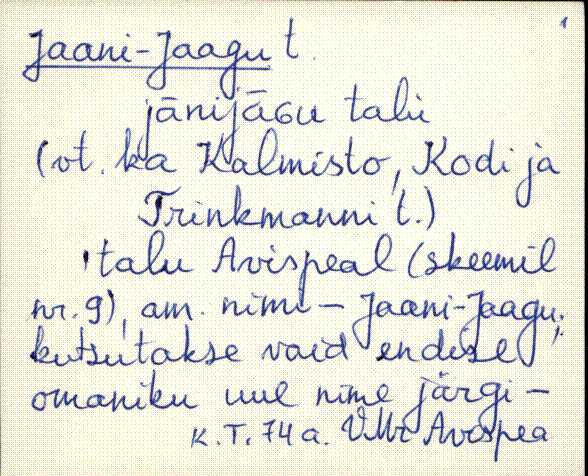 1
Jaani-Jaagu t.
jānijāGu talu
(vt. ka Kalmisto, Kodi ja
Trinkmanni t.)
talu Avispeal (skeemil
nr. 9), am. nimi – Jaani-Jaagu;
kutsutakse vaid endise
omaniku uue nime järgi –
K. T. 74 a. VMr Avispea